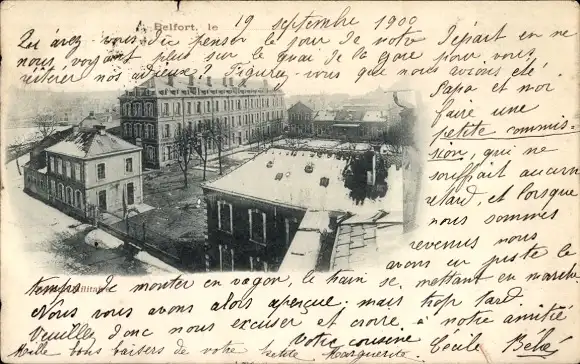 Belfort, le 19 septembre 1900
Qu'avez-vous dû penser le jour de notre départ en ne
nous voyant plus sur le quai de la gare pour vous
réitérer nos adieux. Figurez-vous que nous avions été
Papa et moi
faire une
petite commis-
sion, qui ne
souffrait aucun
retard, et lorsque
nous sommes
revenus nous
avons eu juste le
temps de monter en vagon, le train se mettant en marche.
Nous vous avons alors aperçue mais trop tard.
Veuillez donc nous excuser et croire à notre amitié
Votre cousine Cécile
Mille bons baisers de votre petite Marguerite.